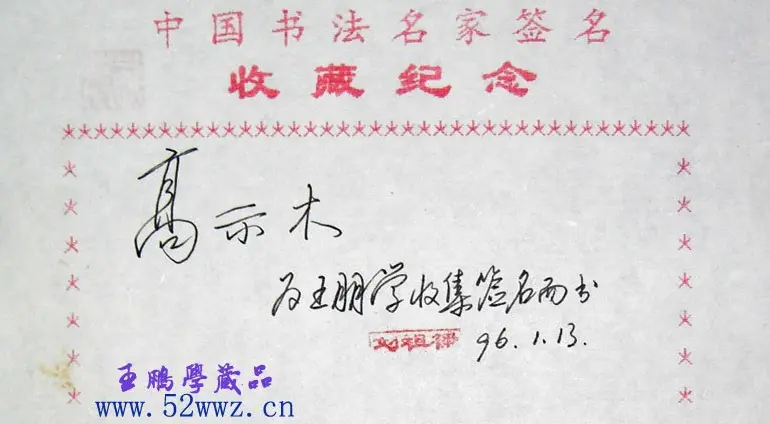 中国书法名家签名
收藏纪念
高示木
为王朋学收集签名而书
96.1.13.
王鵬學藏品
www.52wwz.cn